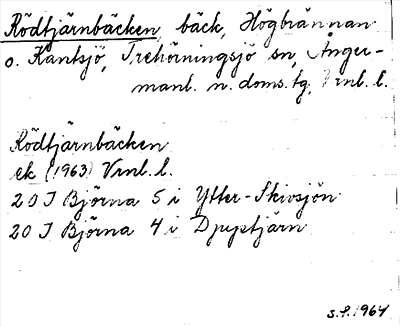 Rödtjärnbäcken, bäck, Högbrännan
o. Kantsjö, Trehörningsjö sn, Ånger-
manl. n. doms.tg, Vrnl. l.
Rödtjärnbäcken
ek (1963) Vrnl. l.
20 I Björna 5 i Ytter-Skivsjön
20 I Björna 4 i Djuptjärn
1964